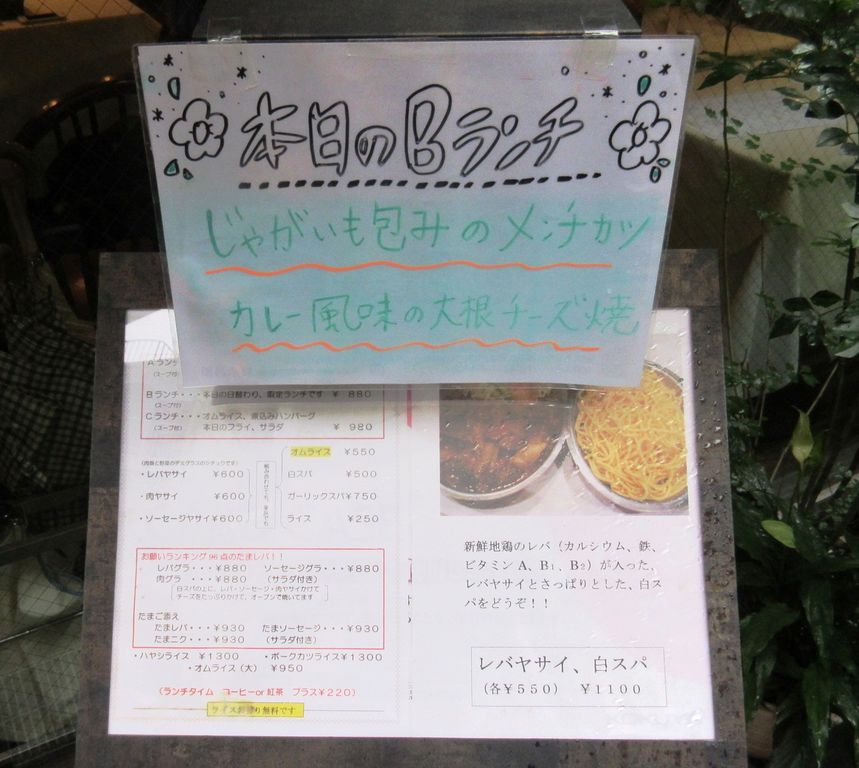 本日のBランチ
じゃがいも包みのメンチカツ
カレー風味の大根チーズ焼
Aラン
(スープ付)
Bランチ・・・本日の日替わり、限定ランチです ¥ 880
(スープ付)
Cランチ・・・オムライス、煮込みハンバーグ
(スープ付) 本日のフライ、サラダ ¥ 980
オムライス ¥550
・レバヤサイ ¥600
白スパ ¥500
・肉ヤサイ ¥600
ガーリックスパ¥750
・ソーセージヤサイ¥600
ライス ¥250
お願いランキング96点のたまレバ!!
レバグラ・・¥880 ソーセージグラ・・¥880
肉グラ ・・¥880 (サラダ付き)
白スパの上に、レバ・ソーセージ・肉ヤサイかけて
チーズをたっぷりかけて、オーブンで焼いてます
たまご添え
たまレバ・・・¥930 たまソーセージ・・・¥930
たまニク・・・¥930 (サラダ付き)
・ハヤシライス ¥1300 ・ポークカツライス¥1300
・オムライス(大) ¥950
(ランチタイム コーヒーor紅茶 プラス¥220)
ライスお替り無料です
新鮮地鶏のレバ(カルシウム、鉄、
ビタミンA、B₁、B₂)が入った、
レバヤサイとさっぱりとした、白ス
パをどうぞ!!
レバヤサイ、白スパ
(各¥550) ¥1100